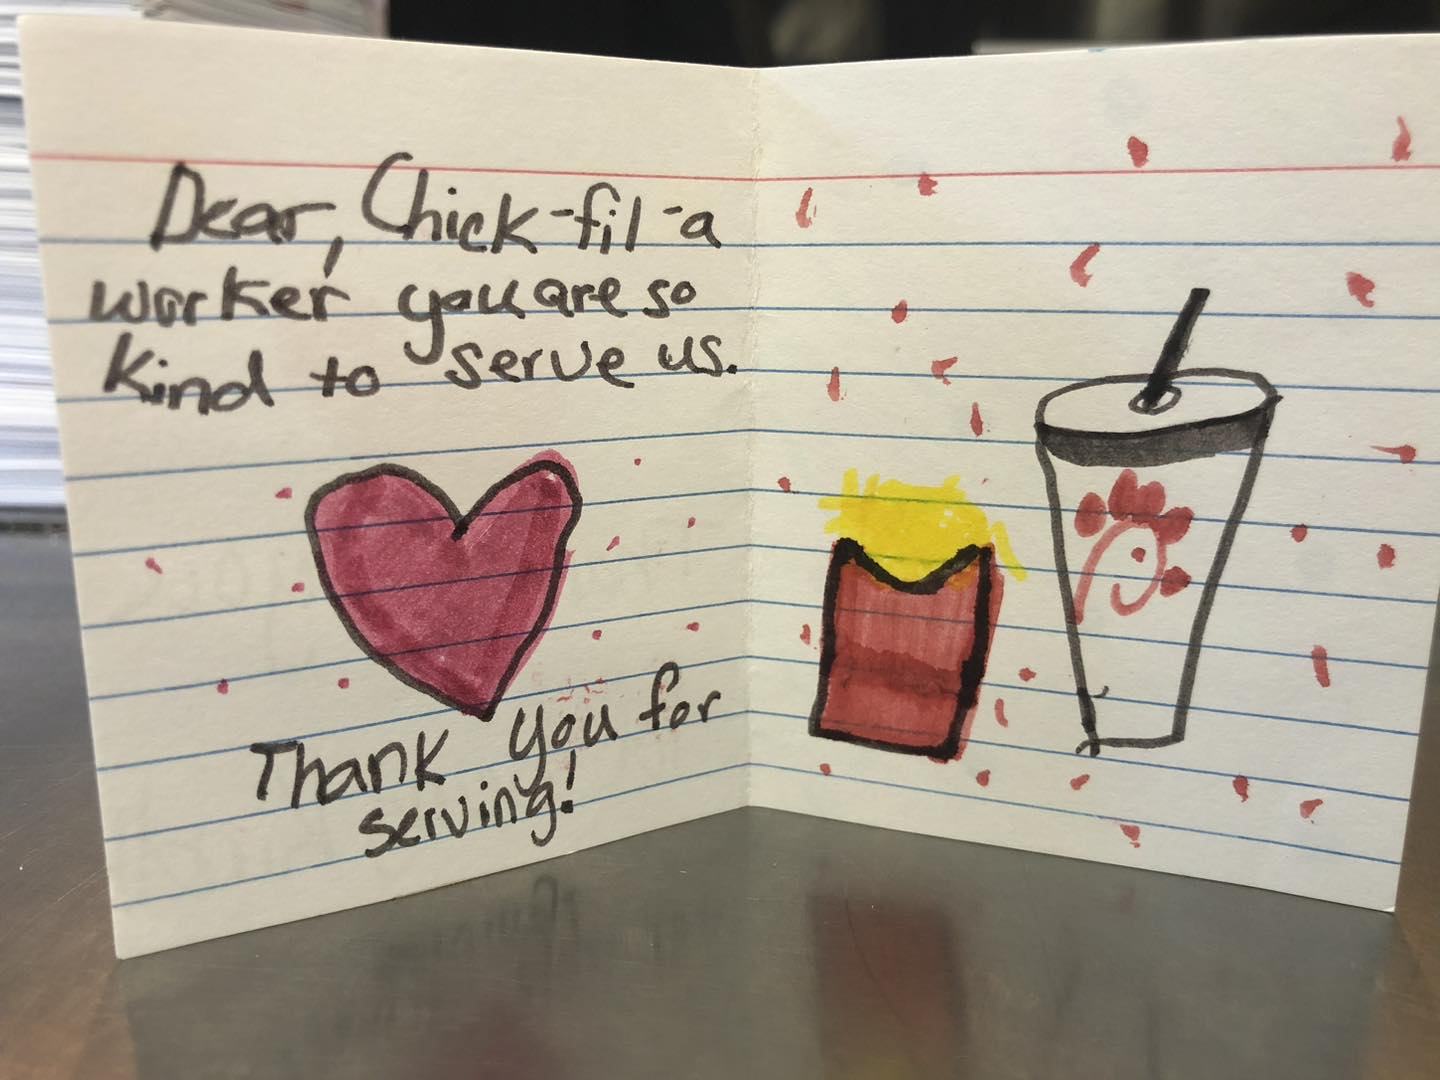 Dear, Chick-fil-a
worker you are so
kind to serve us.
Thank you for
serving!